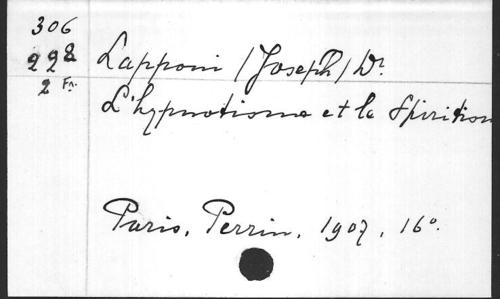 306
228
2 Fr.
Lapponi /Joseph/ Dr.
L'hypnotisme et le Spiritism
Paris, Perrin, 1907, 16°.